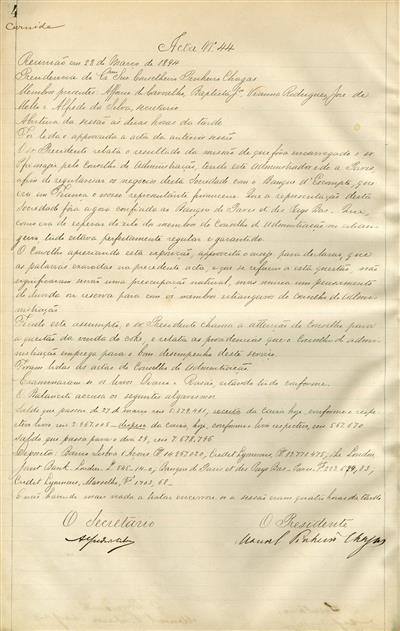 4
Acta Nº 44
Reunião em 28 de Março de 1894
Presidencia do Exmo Snr Conselheiro Pinheiro Chagas
Membros presentes Affonso de Carvalho, Baptista Jr, Vianna Rodrigues, José de
Mello e Alfredo da Silva, secretario
Abertura da sessão ás duas horas da tarde
Foi lida e approvada a acta da anterior sessão
O sr Presidente relata o resultado da missão de que fôra encarregado o sr
pelo Conselho de Administração, tendo este Administrador ido a Paris,
afim de regularisar os negocios desta Sociedade com o Banque d'Escompte, que
era em França o nosso representante financeiro. Que a representação desta
Sociedade fôra agora confiada ao Banque de Paris et des Pays Bas. Que,
como era de esperar do zelo do membro do Conselho d'Administração no estran-
geiro tudo estava perfeitamente regular e garantido.
O Conselho apreciando esta exposição, aproveita o ensejo para declarar que
as palavras exaradas na precedente acta, e que se referem a esta questão, não
significaram senão uma preocupação natural, mas nunca um pensamento
de duvida ou reserva para com os membros estrangeiros do Conselho de Admi-
nistração
Findo este assumpto, o sr Presidente chama a attenção do Conselho para
a questão da venda do coke, e relata as providencias que o Conselho de admi-
nistração emprega para o bom desempenho deste serviço.
Foram lidas as actas do Conselho de Administração.
Examinaram-se os livros Diario e Rasão, estando tudo conforme.
O Balancete accusa os seguintes algarismos:
Saldo que passou de 27 de março reis 8.279.441, receita da Caixa hoje, conforme o respe-
ctivo livro reis - despeza da caixa hoje, conforme o livro respectivo, reis 567.670
Saldo que passa para o dia 29, reis 7.678.796
Deposito: Banco Lisboa & Açores Rs 14.257.020, Credit Lyonnais, Rs 12.771.475; The London
Joint Bank - London £ 545-14-0; Banque de Paris et des Pays Bas - Paris - Fs 223.694,83;
Credit Lyonnais, Marselha, Fs 1703,68 -
E não havendo mais nada a tratar encerrou-se a sessão eram quatro horas da tarde
O Secretário O Presidente
Manoel Pinheiro Chagas